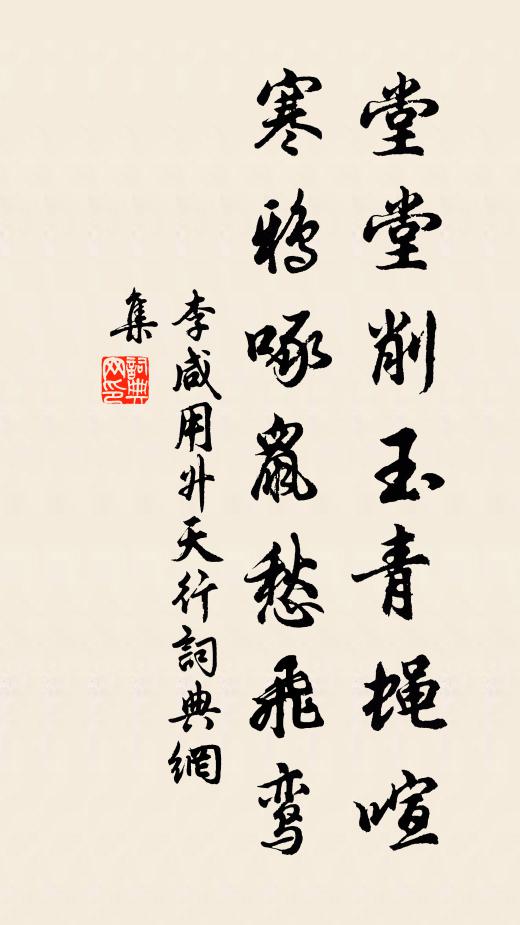 堂堂削玉青蝇喧
寒鸦啄鼠愁飛鸾
李咸用升天行詞典網
集
詞典
网印